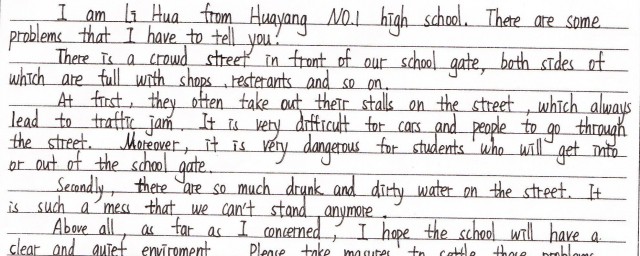 I am Li Hua from Huayang NO.1 high school. There are some
problems that I have to tell you:
There is a crowd street in front of our school gate, both sides of
which are full with shops, resterants and so on.
At first, they often take out their stalls on the street, which always
lead to traffic jam. It is very difficult for cars and people to go through
the street. Moreover, it is very dangerous for students who will get into
or out of the school gate.
Secondly, there are so much drunk and dirty water on the street. It
is such a mess that we can't stand anymore.
Above all, as far as I concerned, I hope the school will have a
clear and quiet enviroment. Please take masures to settle these problems